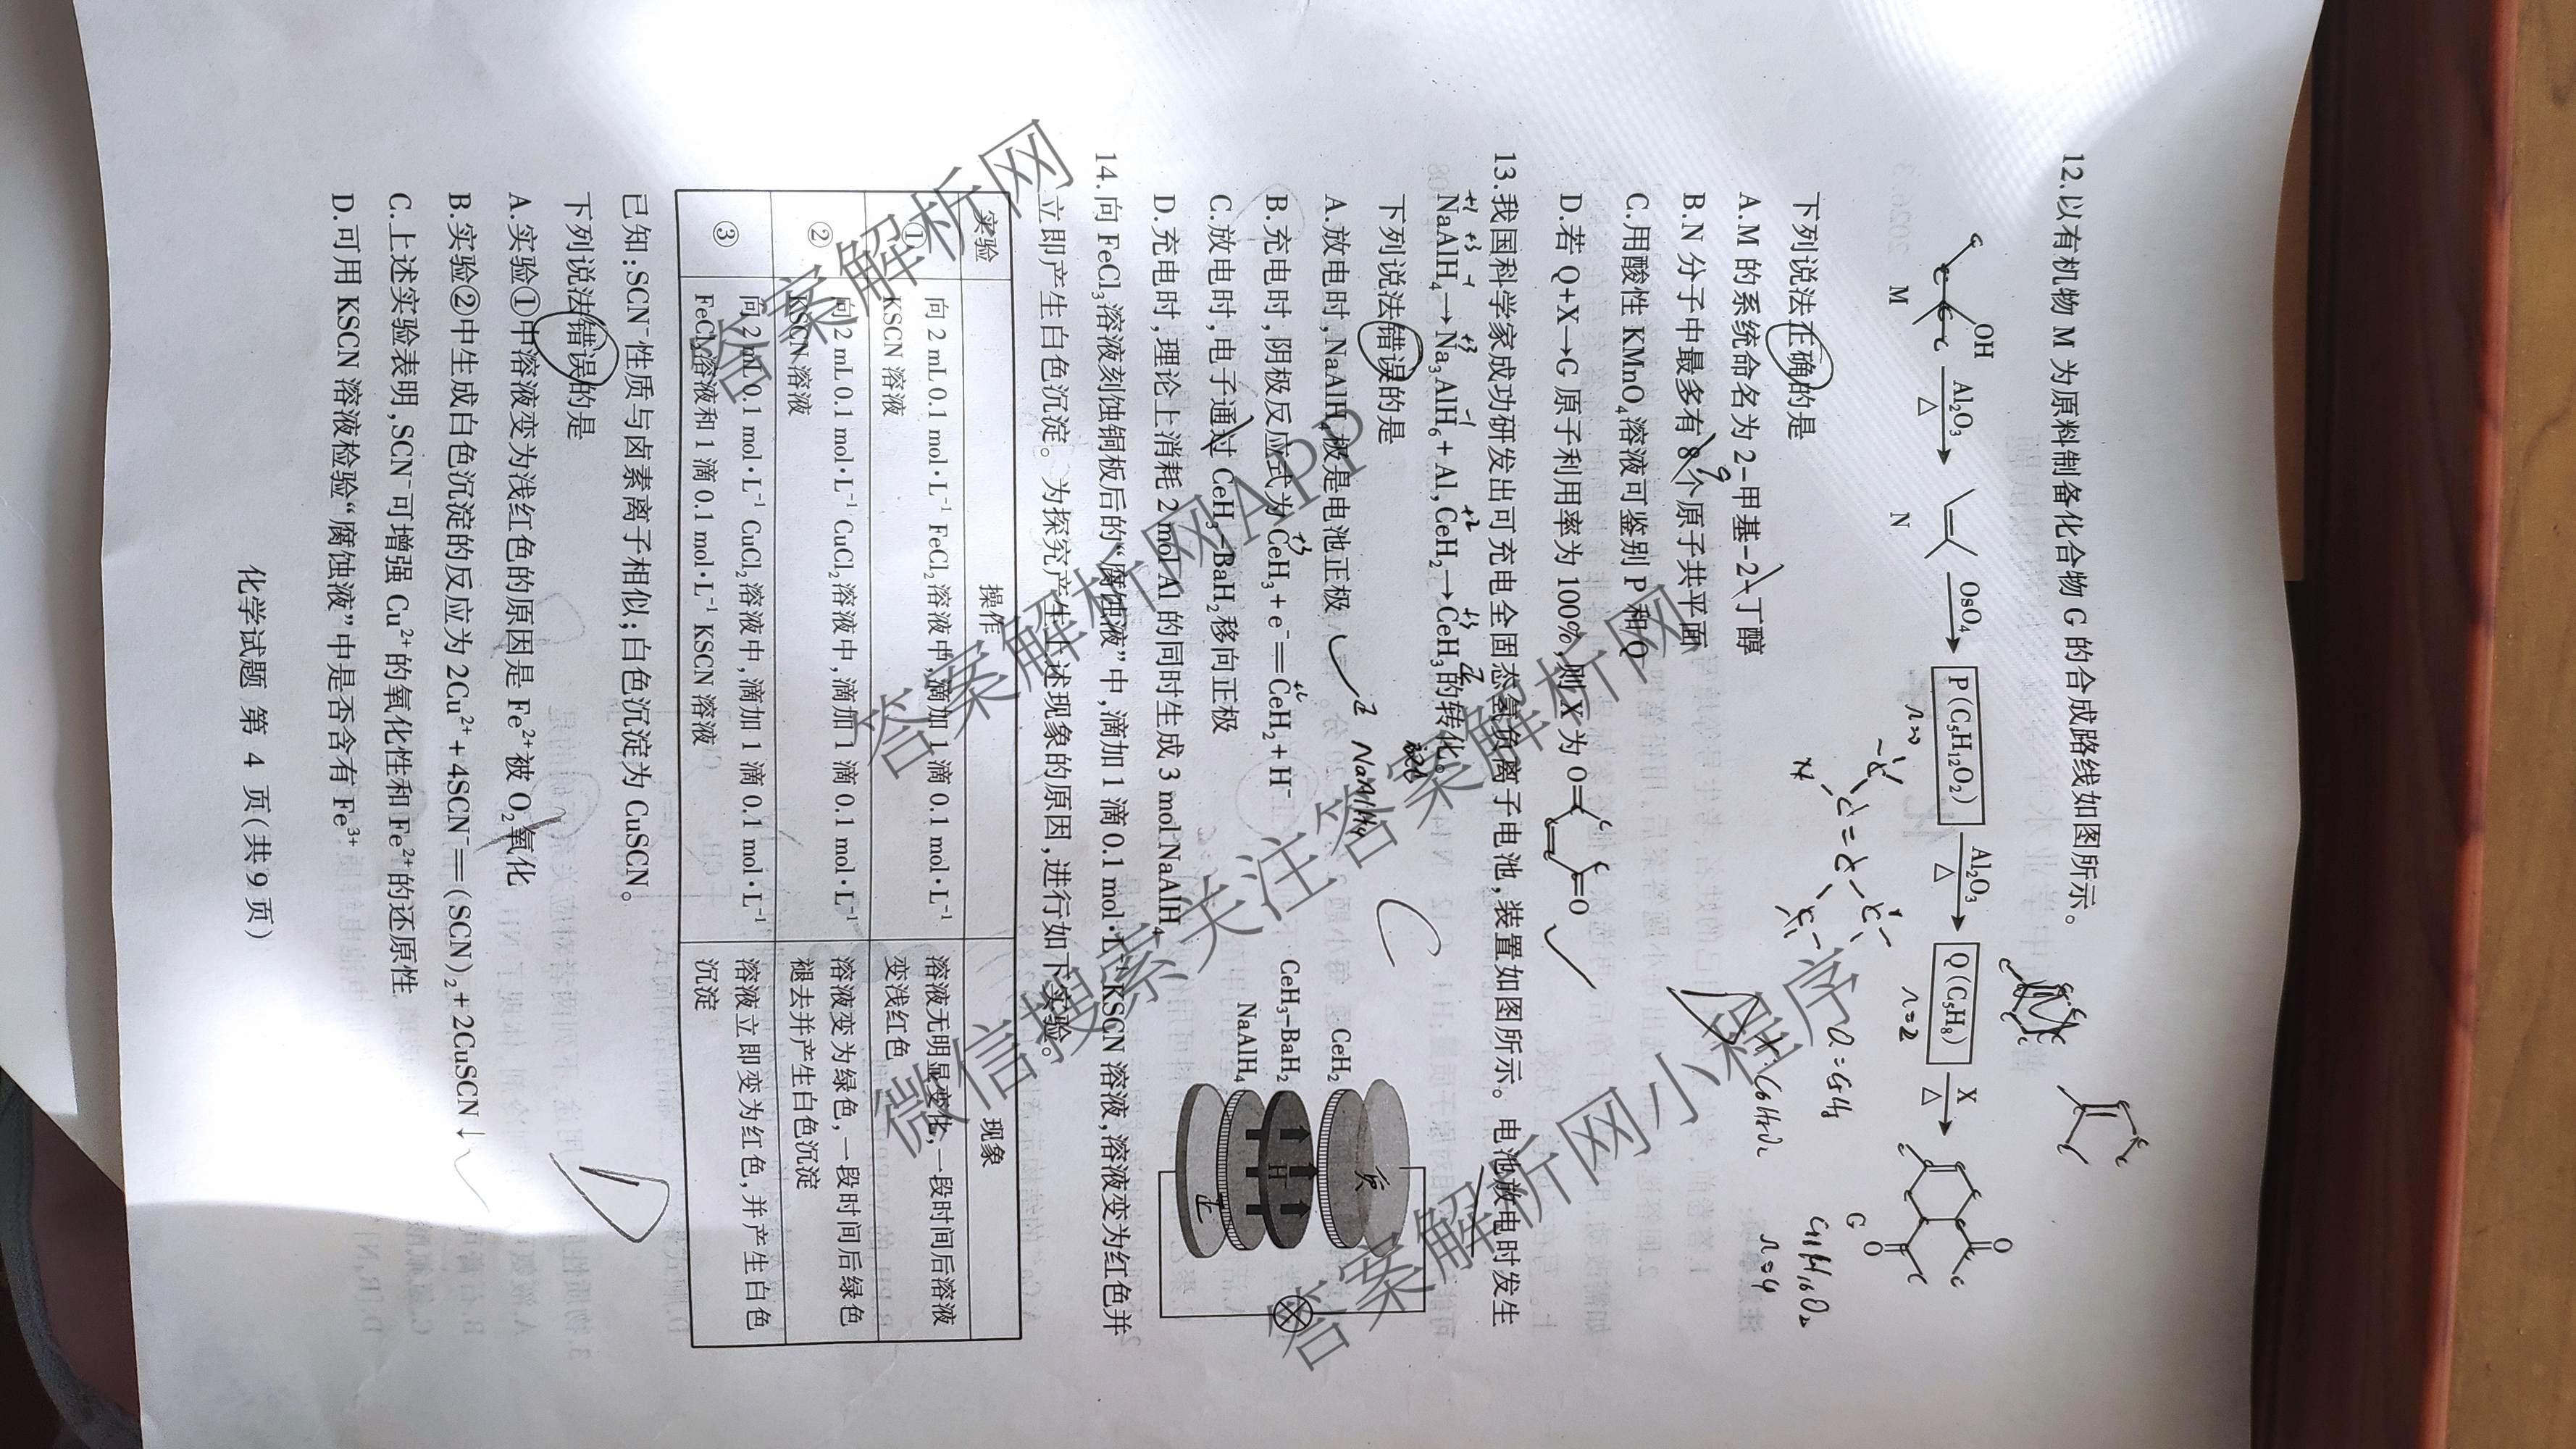 12.以有机物 M 为原料制备化合物 G 的合成路线如图所示。
OH
Al₂O₃
△
OsO₄
P(C₅H₁₂O₂)
Al₂O₃
△
Q(C₅H₈)
X
△
O
O
M
N
G
n=0
n=2
n=4
下列说法正确的是
A.M 的系统命名为 2-甲基-2-丁醇
B.N 分子中最多有 8 个原子共平面
9
C.用酸性 KMnO₄溶液可鉴别 P 和 Q
D.若 Q+X→G 原子利用率为 100%,则 X 为 O O
13.我国科学家成功研发出可充电全固态氢负离子电池,装置如图所示。电池放电时发生
NaAlH₄→Na₃AlH₆+Al,CeH₂→CeH₃的转化。
下列说法错误的是
A.放电时,NaAlH₄极是电池正极
B.充电时,阴极反应式为 CeH₃+e⁻═CeH₂+H⁻
C.放电时,电子通过 CeH₃-BaH₂移向正极
D.充电时,理论上消耗 2 mol Al 的同时生成 3 mol NaAlH₄
CeH₂
CeH₃-BaH₂
NaAlH₄
H⁻
负
正
14.向 FeCl₃溶液刻蚀铜板后的“腐蚀液”中,滴加 1 滴 0.1 mol·L⁻¹ KSCN 溶液,溶液变为红色并
立即产生白色沉淀。为探究产生上述现象的原因,进行如下实验。
实验 操作 现象
① 向 2 mL 0.1 mol·L⁻¹ FeCl₂溶液中,滴加 1 滴 0.1 mol·L⁻¹ 溶液无明显变化,一段时间后溶液
KSCN 溶液 变浅红色
② 向 2 mL 0.1 mol·L⁻¹ CuCl₂溶液中,滴加 1 滴 0.1 mol·L⁻¹ 溶液变为绿色,一段时间后绿色
KSCN 溶液 褪去并产生白色沉淀
③ 向 2 mL 0.1 mol·L⁻¹ CuCl₂溶液中,滴加 1 滴 0.1 mol·L⁻¹ 溶液立即变为红色,并产生白色
FeCl₂溶液和 1 滴 0.1 mol·L⁻¹ KSCN 溶液 沉淀
已知:SCN⁻性质与卤素离子相似;白色沉淀为 CuSCN。
下列说法错误的是
A.实验①中溶液变为浅红色的原因是 Fe²⁺被 O₂氧化
B.实验②中生成白色沉淀的反应为 2Cu²⁺+4SCN⁻═(SCN)₂+2CuSCN↓
C.上述实验表明,SCN⁻可增强 Cu²⁺的氧化性和 Fe²⁺的还原性
D.可用 KSCN 溶液检验“腐蚀液”中是否含有 Fe³⁺
化学试题 第 4 页(共 9 页)
答案解析网
答案解析网APP
微信搜索关注答案解析网
答案解析网小程序